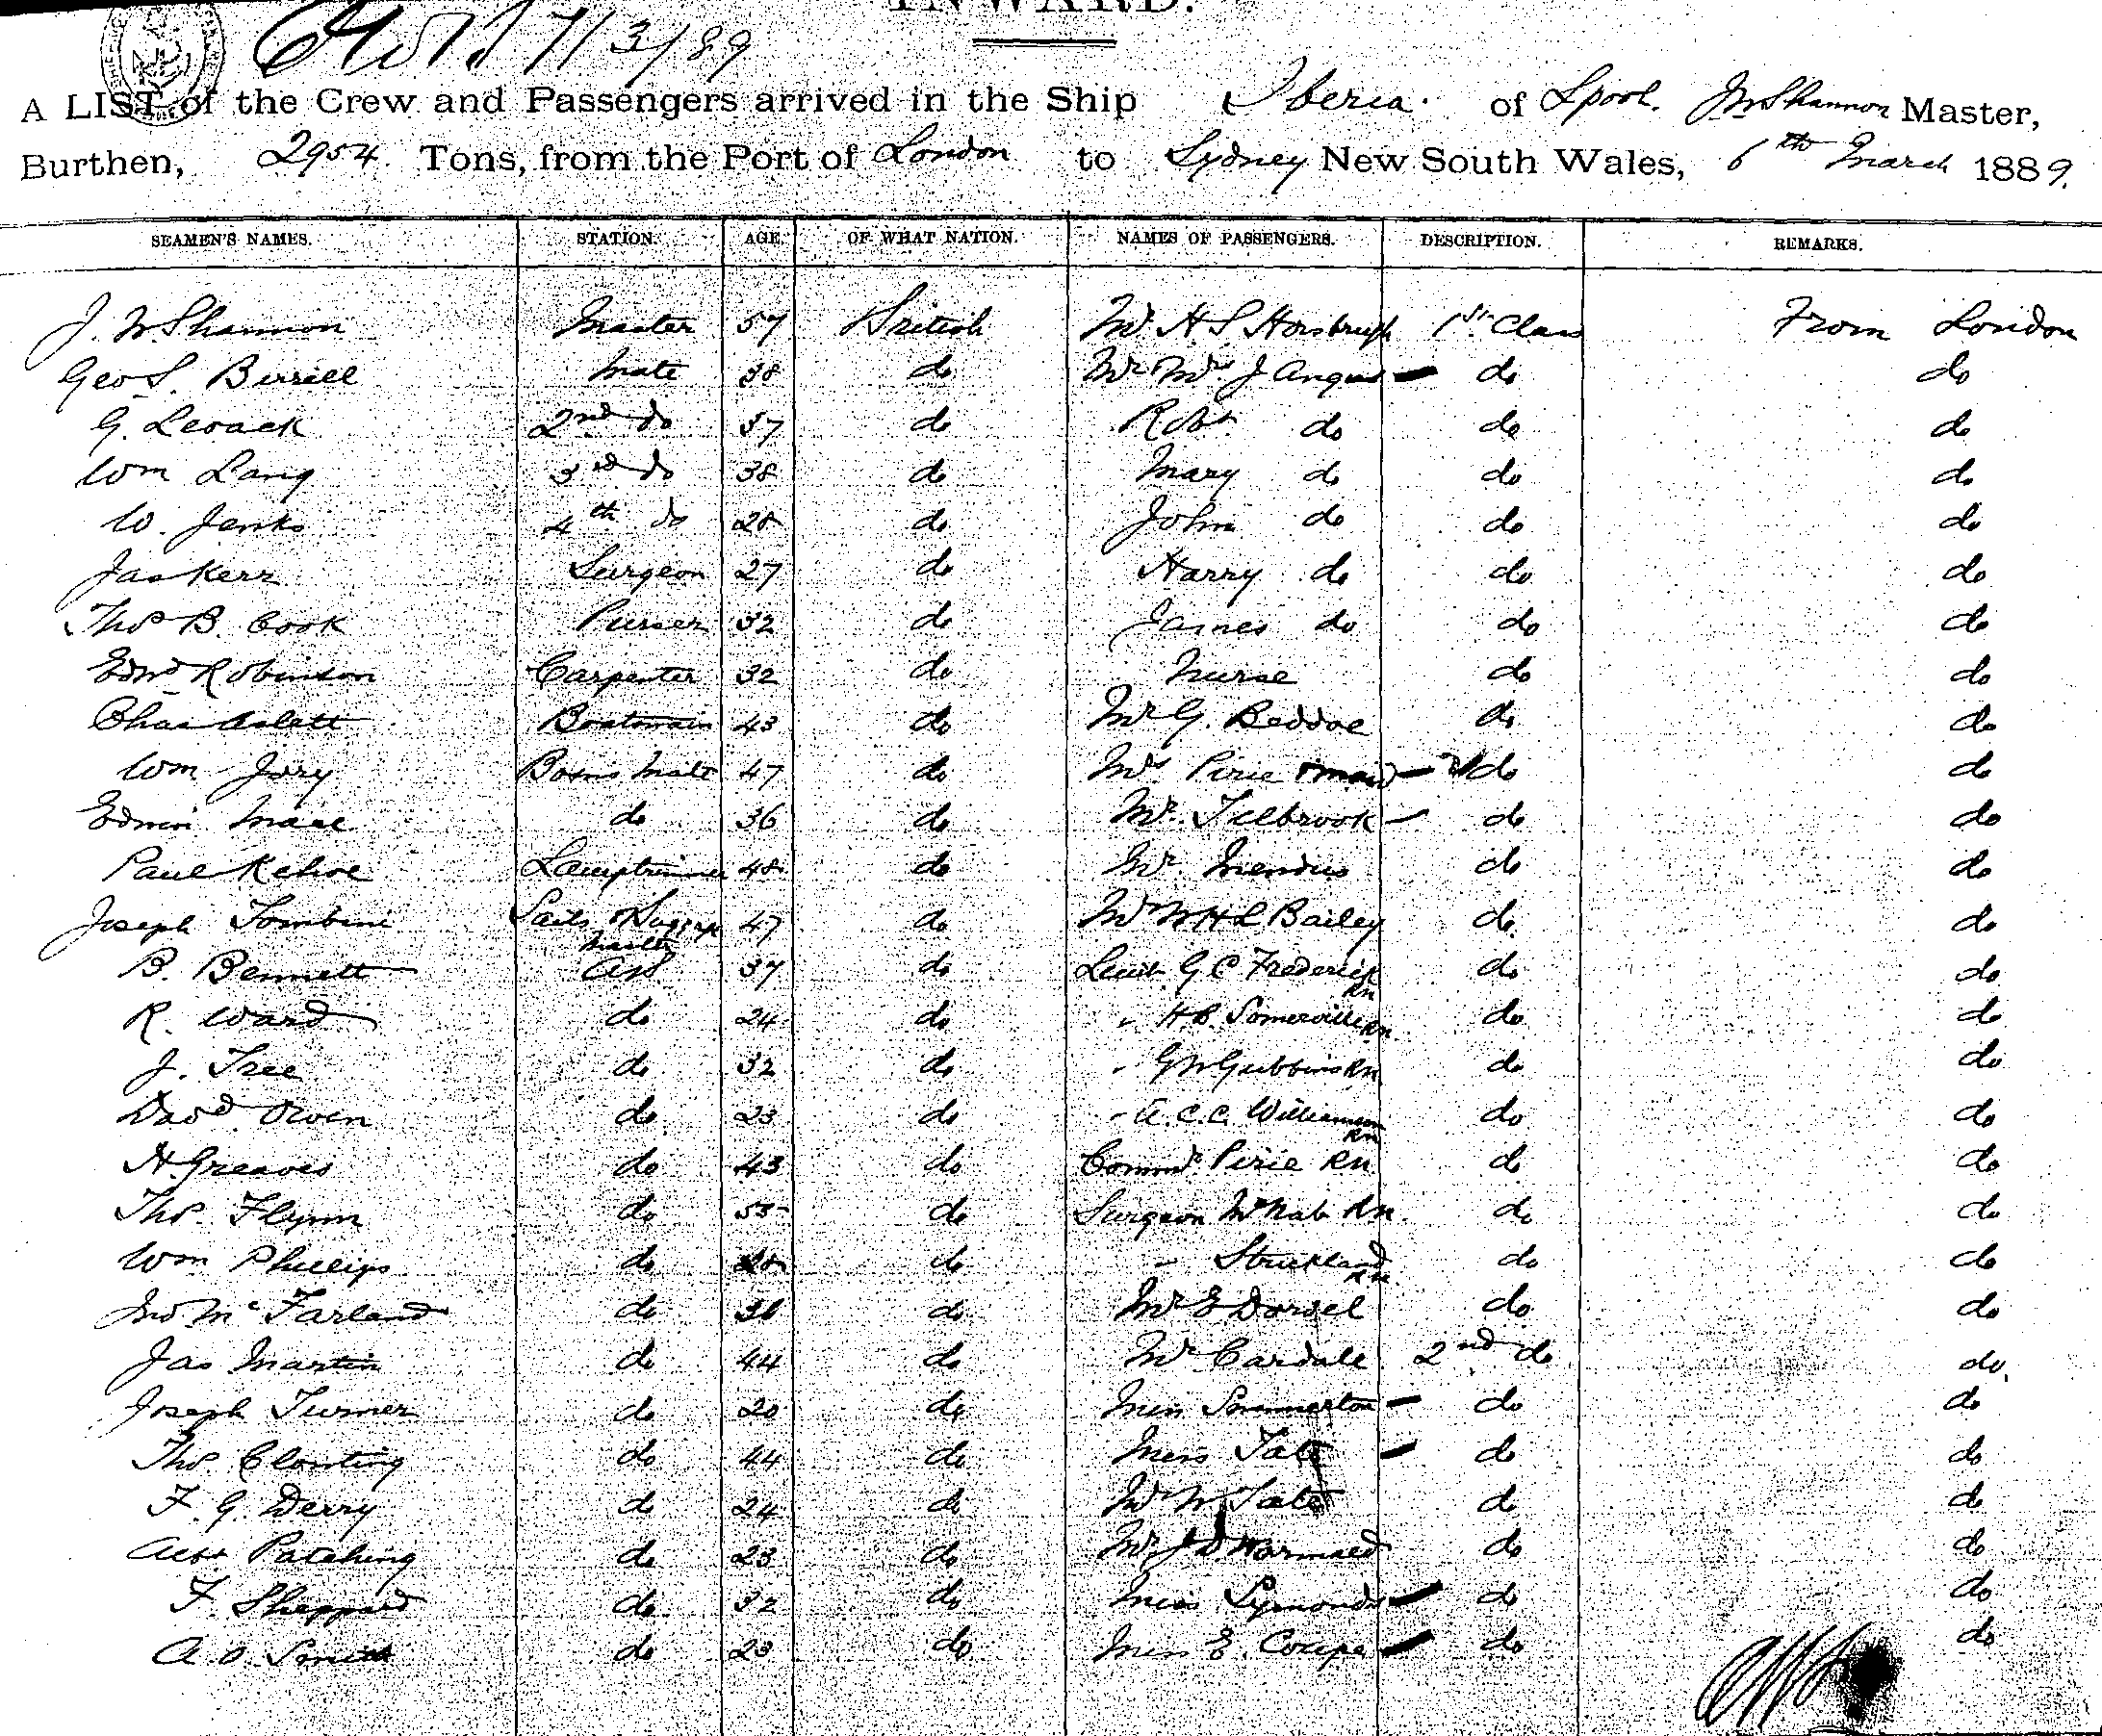 INWARD.
7/3/89
A LIST of the Crew and Passengers arrived in the Ship Iberia. of Lpool. J W Shannon Master,
Burthen, 2954 Tons, from the Port of London to Sydney New South Wales, 6th March 1889.
SEAMEN'S NAMES. STATION. AGE. OF WHAT NATION. NAMES OF PASSENGERS. DESCRIPTION. REMARKS.
J. W. Shannon Master 57 British Mr H S Horsbrugh 1st Class From London
Geo S. Birrell Mate 38 do Mr Mrs J Angus do do
G. Levack 2nd do 37 do Robt do do do
Wm Lang 3rd do 38 do Mary do do do
W. Jenks 4th do 28 do John do do do
Jas Kerr Surgeon 27 do Harry do do do
Thos B. Cook Purser 32 do James do do do
Edwd Robinson Carpenter 32 do Nurse do do
Chas Aslatt Boatswain 43 do Mr G. Beddoe do do
Wm Jory Bosns Mate 47 do Mrs Pirie & maid do do
Edwin Mace do 36 do Mr. Tilbrook do do
Paul Kehoe Lamptrimmer 48 do Mr. Mendus do do
Joseph Tombini Sails & Baggage 47 do Mr W H L Bailey do do
Master
B. Bennett AB 37 do Lieut G C Frederick RN do do
R. Ward do 24 do " H B. Somerville RN do do
J. Tree do 32 do " G W Gubbins RN do do
Davd Owen do 23 do " A. C. C. Williamson RN do do
H. Greaves do 43 do Commr Pirie RN do do
Thos. Flynn do 55 do Surgeon McNab RN do do
Wm Phillips do do " Strickland RN do do
Jno McFarland do do Mr E Dorsel do do
Jas Martin do 44 do Mr Cardale 2nd do do
Joseph Turner do 20 do Miss Sommerton do do
Thos. Clonting do 44 do Miss Tate do do
F. G. Derry do 24 do Mr W Tate do do
Albt Patching do 23 do Mr J D Wormald do do
F. Sheppard do 32 do Miss Symonds do do
A. O. Smith do 23 do Miss E. Coupe do do